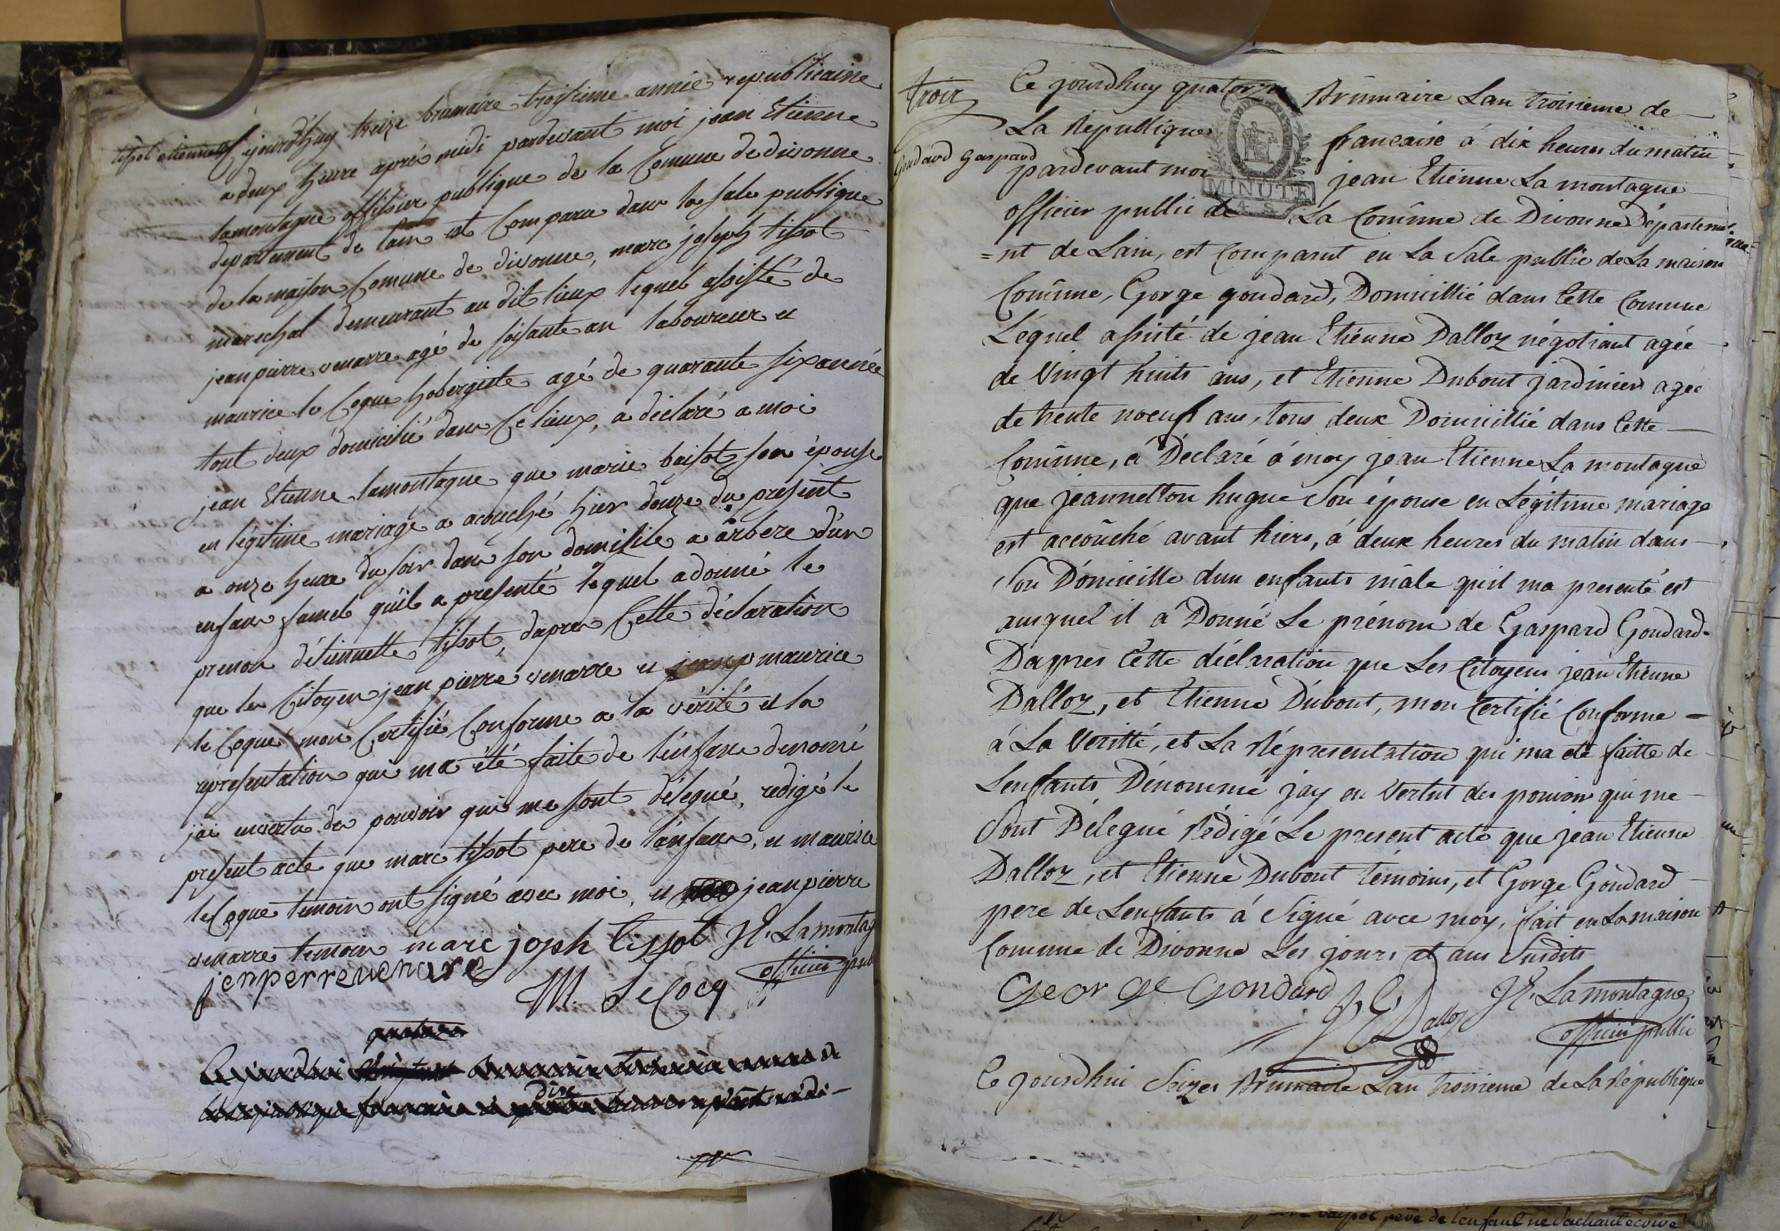 tisot etiennette
ejourdhuy treize brumaire troisieme année republicaine
a deux heure aprés midi pardevant moi jean Etienne
lamontagne offisier publique de la Comune de divonne
departement de lain est Comparu dans la sale publique
de la maison Comune de divonne, marc joseph tisot
mareschal demeurant au dit lieux lequel assisté de
jean pierre venarre agé de soisante an laboureur et
maurice le Coque hobergiste agé de quarante six année
tout deux domicilié dans Ce lieux, a déclaré a moi
jean Etienne lamontagne que marie boisot son épouse
en légitime mariage a acouché hier douze du présent
a onze heure du soir dans son domisile a arbere d'un
enfant femel quil a presenté lequel a donné le
prenon d'étiennette tisot, dapres Cette déclaration
que les Citoyen jean pierre venarre et maurice
le Coque mon Certifié Conforme a la vérité et la
representation qui ma été faite de lenfant denomé
jai envertu des pouvoir qui me sont délegué, redigé le
present acte que marc tisot pere de lanfant, et maurice
le Coque témoin ont signé avec moi, et jean pierre
venarre temoin marc joseph tissot JE. Lamontag
jenperrevenare M. LeCocq officier pub
quatorze
dix
troix
Goudard Gaspard
Ce jourdhuy quatorze Brumaire Lan troisieme de
La Republique francaise á dix heures du matin
pardevant moi jean Etienne La montagne
MINUTE
4. S.
officier public de La Comune de Divonne Départeme
=nt de Lain, est Comparut en La Sale public de La maison
Comune, Gorge goudard, Domicillié dans Cette Comune
Léquel assité de jean Etienne Dalloz négotiant agée
de Vingt huits ans, et Etienne Dubout jardinier agée
de trente noeuf ans, tous deux Domicillié dans Cette
Comune, á Déclaré á moy jean Etienne La montagne
que jeannetton hugue Son épouse en Légitime mariage
est accoûché avant hiers, á deux heures du matin dans
Son Domicille dun enfants mâle quil ma presenté est
auquel il á Donné Le prénom de Gaspard Goudard
Daprès Cétte déclaration que Les Citoyens jean Etienne
Dalloz, et Etienne Dubout, mon Certifié Conforme
á La Veritté, et La Répresentation qui ma été faitte de
Lenfants Dénommé jay en Vertut des pouvoir qui me
Sont Délegué Rédigé Le present acte que jean Etienne
Dalloz, et Etienne Dubout témoins, et Gorge Goudard
pere de Lenfants á Signé avec moy, fait en La maison
Comune de Divonne Les jours et ans Susdits
George Gondard JE Dalloz JE. Lamontagne
officier public
Ce jourdhui Seizes Brumaire Lan troisieme de La Republique